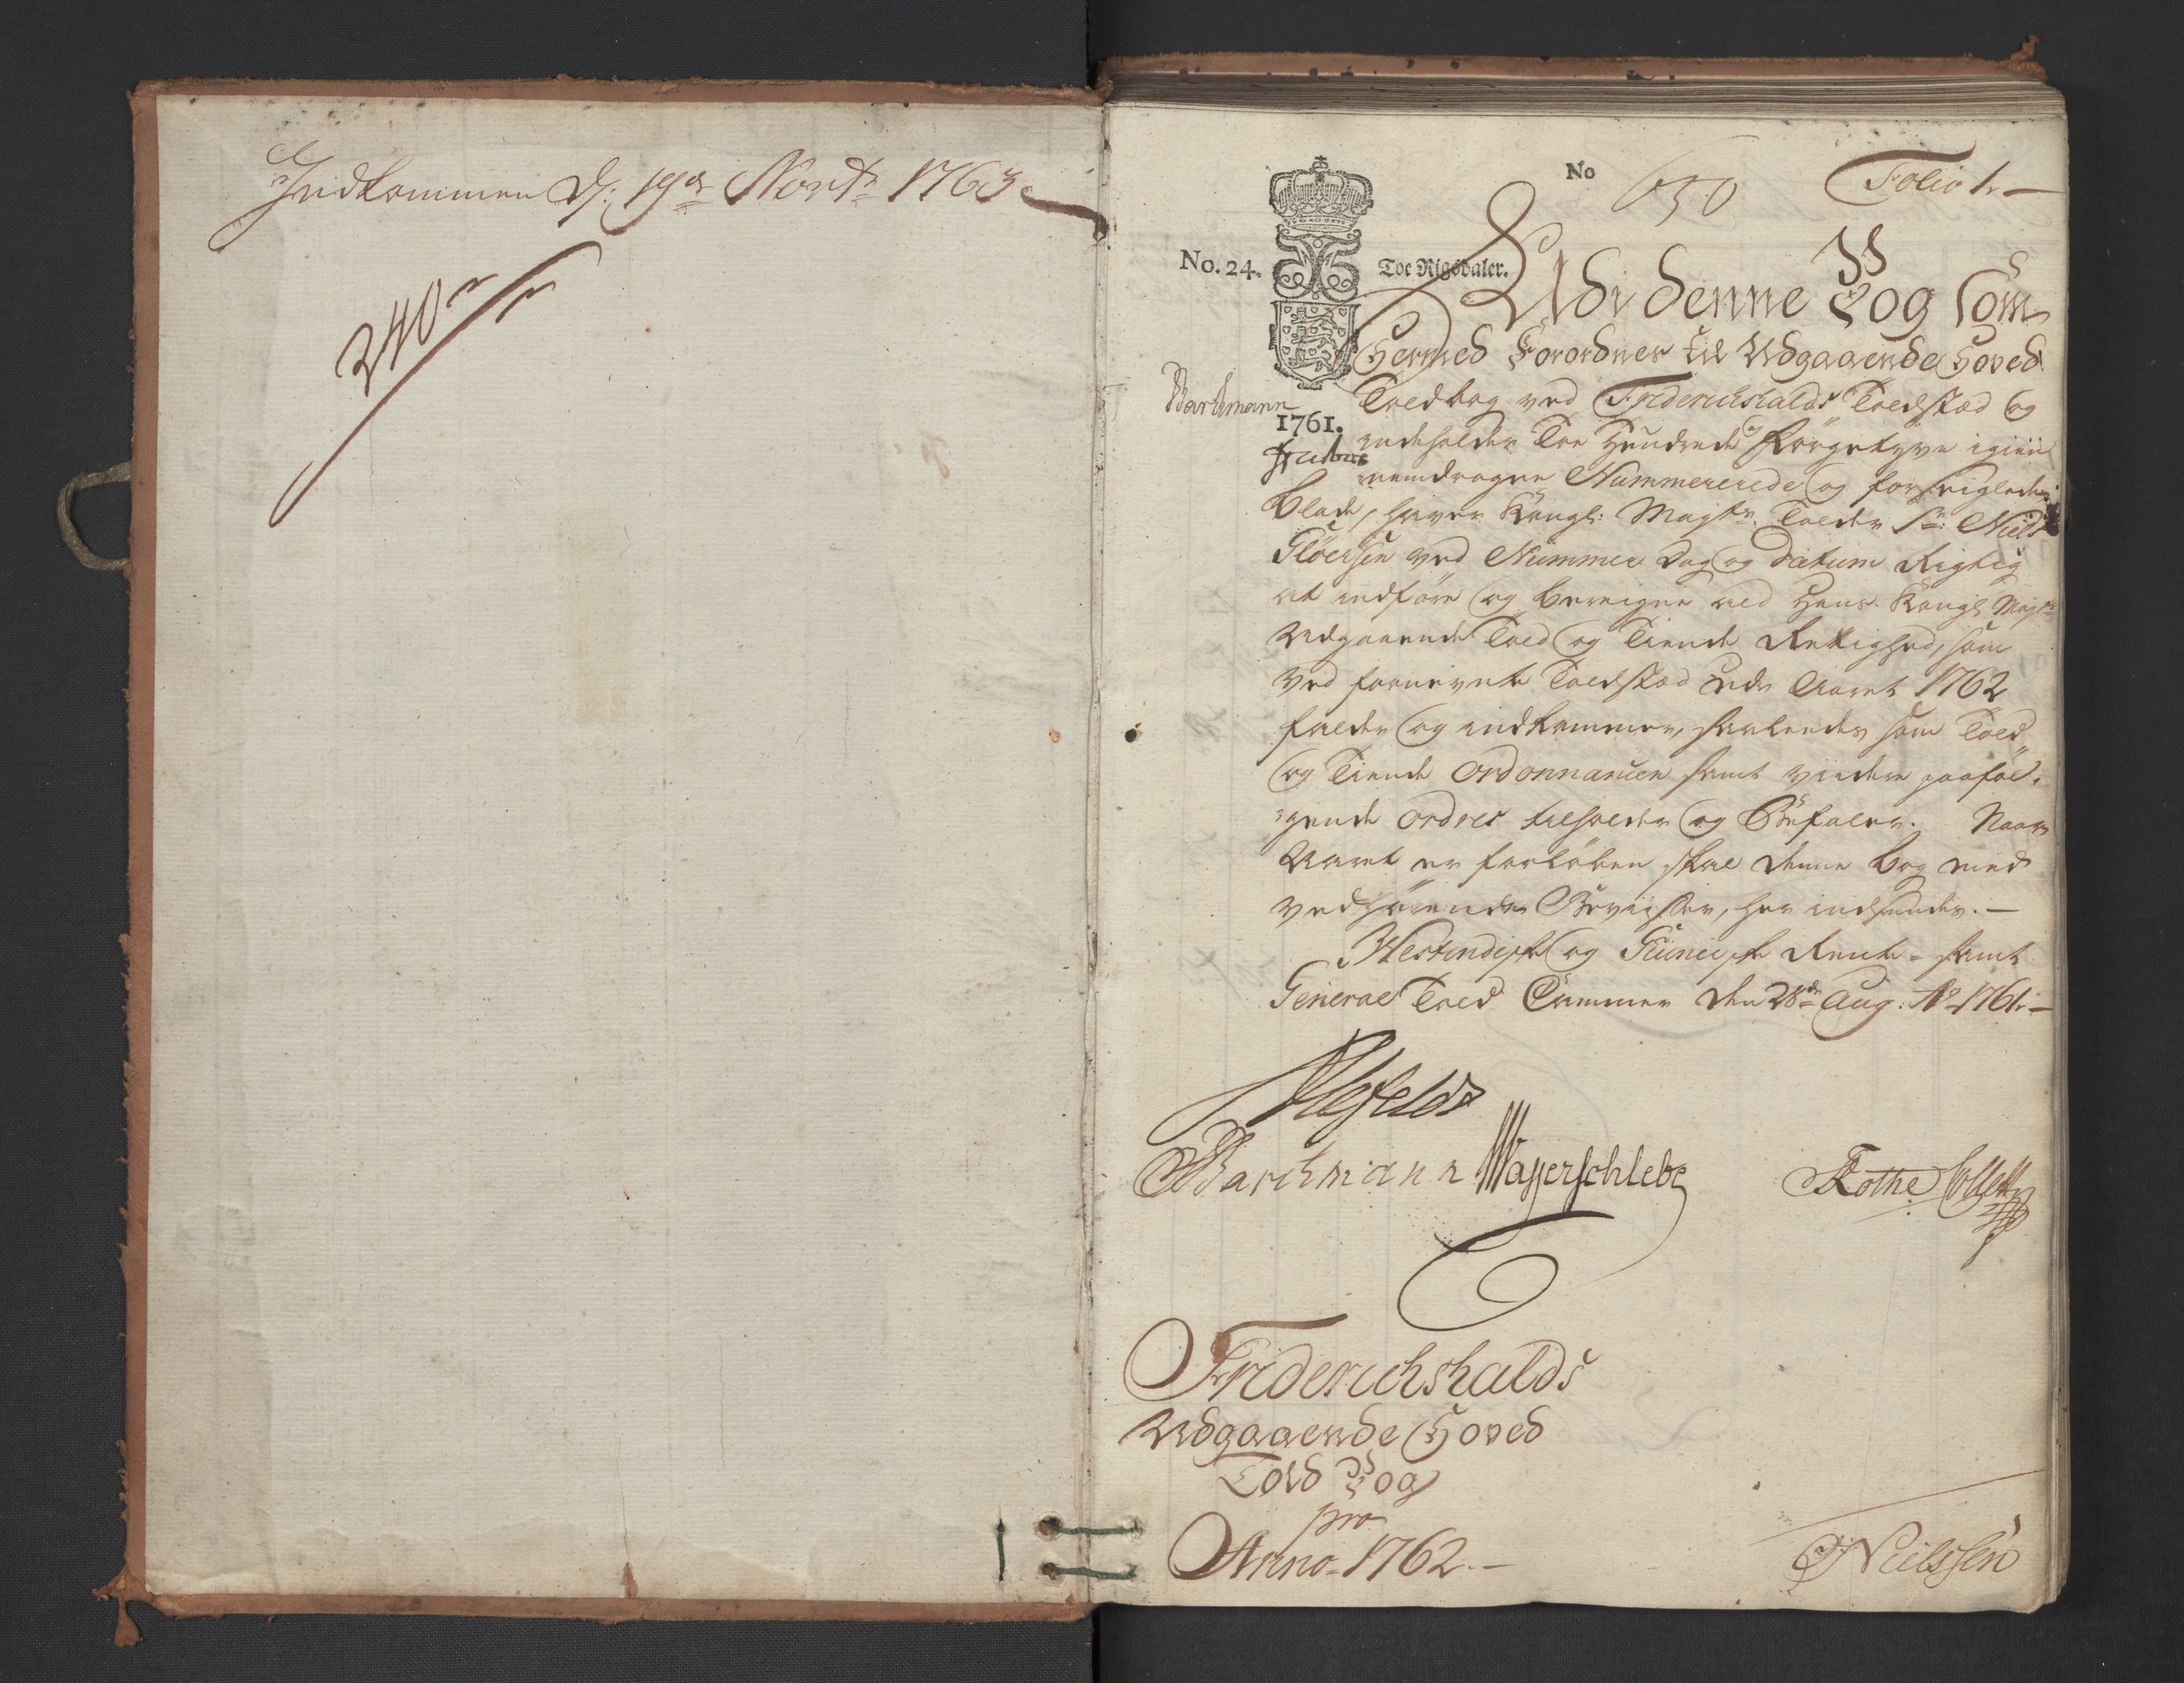 Indkommen d: 19de Novbr 1763
240
No 650
Folio 1.
No. 24.
Toe Rigsdaler.
Udi denne Bog som
Hermed Forordnes til Udgaaende Hoved
Toldbog ved Friderichshalds Toldsted og
Barchmann
1761.
indeholder Toe Hundrede og Førgetyve igien
nemdragne Nummererede og forseiglede
Blade, haver Kongl: Maytz. Tolder Sr: Niels
Gløersen ved Nummer Dag og Datum Rigtig
at indføre og beregne ald Hans Kongl Mayts
Udgaaende Told og Tiende Rettighed, som
ved fornevnte Toldsted udi Aaret 1762
falder og indkommer, saaledes som Told
og Tiende Ordonnancen samt viidere paaføl-
gende Ordres tilholder og Befaler. Naar
Aaret er forløben skal denne bog med
vedhørende Beviisler, her indsendes.
Westindiske og Guineiske Rente- samt
General Told Cammer den 28de Aug: Ao 1761.
Ahlefeldt
Barchmann Wasserschlebe
Rothe Collett
Friderichshalds
Udgaaende Hoved
Told Bog
pro
Anno 1762.
Nielssen